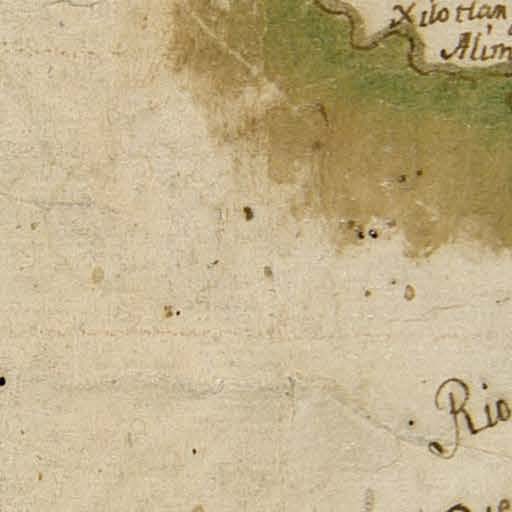 Xilotlan
Alim
Rio